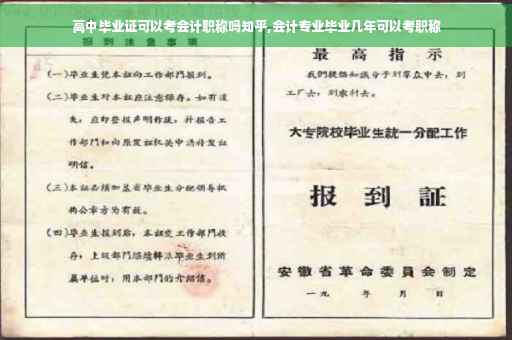 高中毕业证可以考会计职称吗知乎,会计专业毕业几年可以考职称
报到注意事项
(一)毕业生凭本证向工作部门报到。
(二)毕业生对本证应注意保存。如有遗
失,应即登报声明作废,并报告工
作部门和向原发证机关申请补发证
明信。
(三)本证必须加盖省毕业生分配领导机
构公章方为有效。
(四)毕业生报到后,本证交工作部门收
存;上级部门继续转派毕业生到所
属单位时,用本部门的介绍信。
最高指示
我们提倡知识分子到群众中去,到
工厂去,到农村去。
大专院校毕业生統一分配工作
报到証
安徽省革命委員会制定
一九 年 月 日